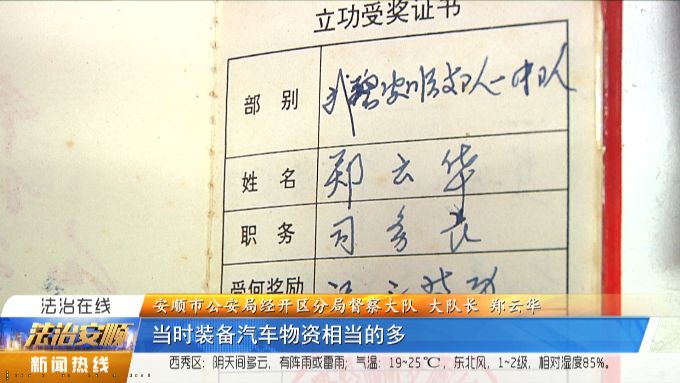 立功受奖证书
部别 武警安顺支队一中队
姓名 郑云华
职务 司务长
受何奖励
法治在线
法治安顺
新闻热线
安顺市公安局经开区分局督察大队 大队长 郑云华
当时装备汽车物资相当的多
西秀区：阴天间多云，有阵雨或雷雨；气温：19~25℃，东北风，1~2级，相对湿度85%。